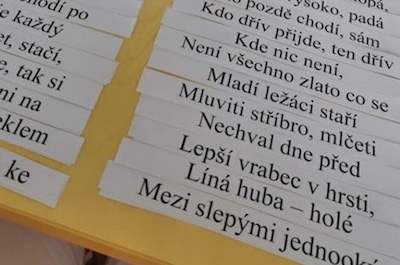 chodí po
každý
et, stačí,
e, tak si
ni na
eklem
ke
vysoko, padá
pozdě chodí, sám
Kdo dřív přijde, ten dřív
Kde nic není,
Není všechno zlato co se
Mladí ležáci staří
Mluviti stříbro, mlčeti
Nechval dne před
Lepší vrabec v hrsti,
Líná huba – holé
Mezi slepými jednooký